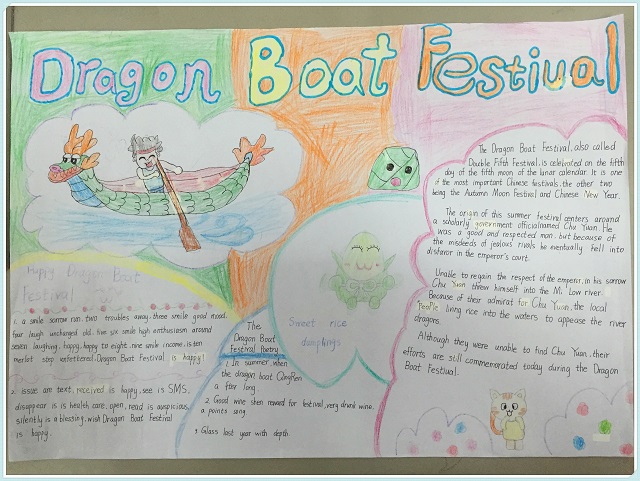 Dragon Boat Festival
The Dragon Boat Festival, also called
Double Fifth Festival, is celebrated on the fifth
day of the fifth moon of the lunar calendar. It is one
of the most important Chinese festivals, the other two
being the Autumn Moon Festival and Chinese New Year.
The origin of this summer festival centers around
a scholarly government officialnamed Chu Yuan. He
was a good and respected man, but because of
the misdeeds of jealous rivals he eventually fell into
disfavor in the emperor's court.
Unable to regain the respect of the emperor, in his sorrow
Chu Yuan threw himself into the Mi Low river.
Because of their admirat for Chu Yuan, the local
PeoPle living rice into the waters to appease the river
dragons.
Although they were unable to find Chu Yuan, their
efforts are still commemorated today during the Dragon
Boat Festival.
Happy Dragon Boat
Festival
1. a smile sorrow run, two troubles away, three smile good mood,
four laugh unchanged old, five six smile high enthusiasm around
seven laughing, happy, happy to eight, nine smile income, is ten
stop Dragon Boat Festival is happy!
2. issue am text, received is happy, see is SMS,
disappear is is health care, open, read is auspicious,
silently is a blessing, wish Dragon Boat Festival
is happy.
The
Dragon Boat
Festival Poetry
1. In summer, when
the dragon boat
a far long.
2. Good wine shen reward for festival, very drunk wine,
a points sing.
3. Glass last year with depth
Sweet rice
dumplings